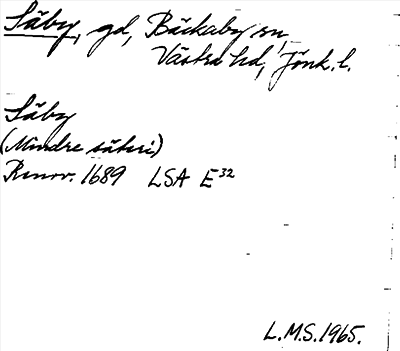 Säby, gd, Bäckaby sn,
Västra hd, Jönk. l.
Säby
(Mindre säteri)
Renov. 1689 LSA E³²
L.M.S. 1965.